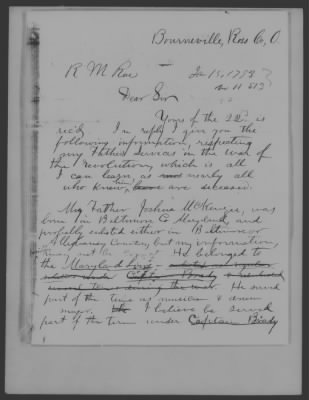 Bourneville, Ross Co, O.
R. M.
Dear Sir
Yours of the 22d is
rec'd. In reply I give you the
following information, respecting
my Fathers services in the war of
the revolution, which is all
I can learn, as nearly all
who knew him are deceased.
My Father Joshua McKenzie, was
born in Baltimore Co Maryland, and
probably enlisted either in Baltimore or
Alleghaney Counties, but my information
may not be He belonged to
the Maryland Line,
He served
part of the time as musician & drum
major. I believe he served
part of the term under Captain Brady